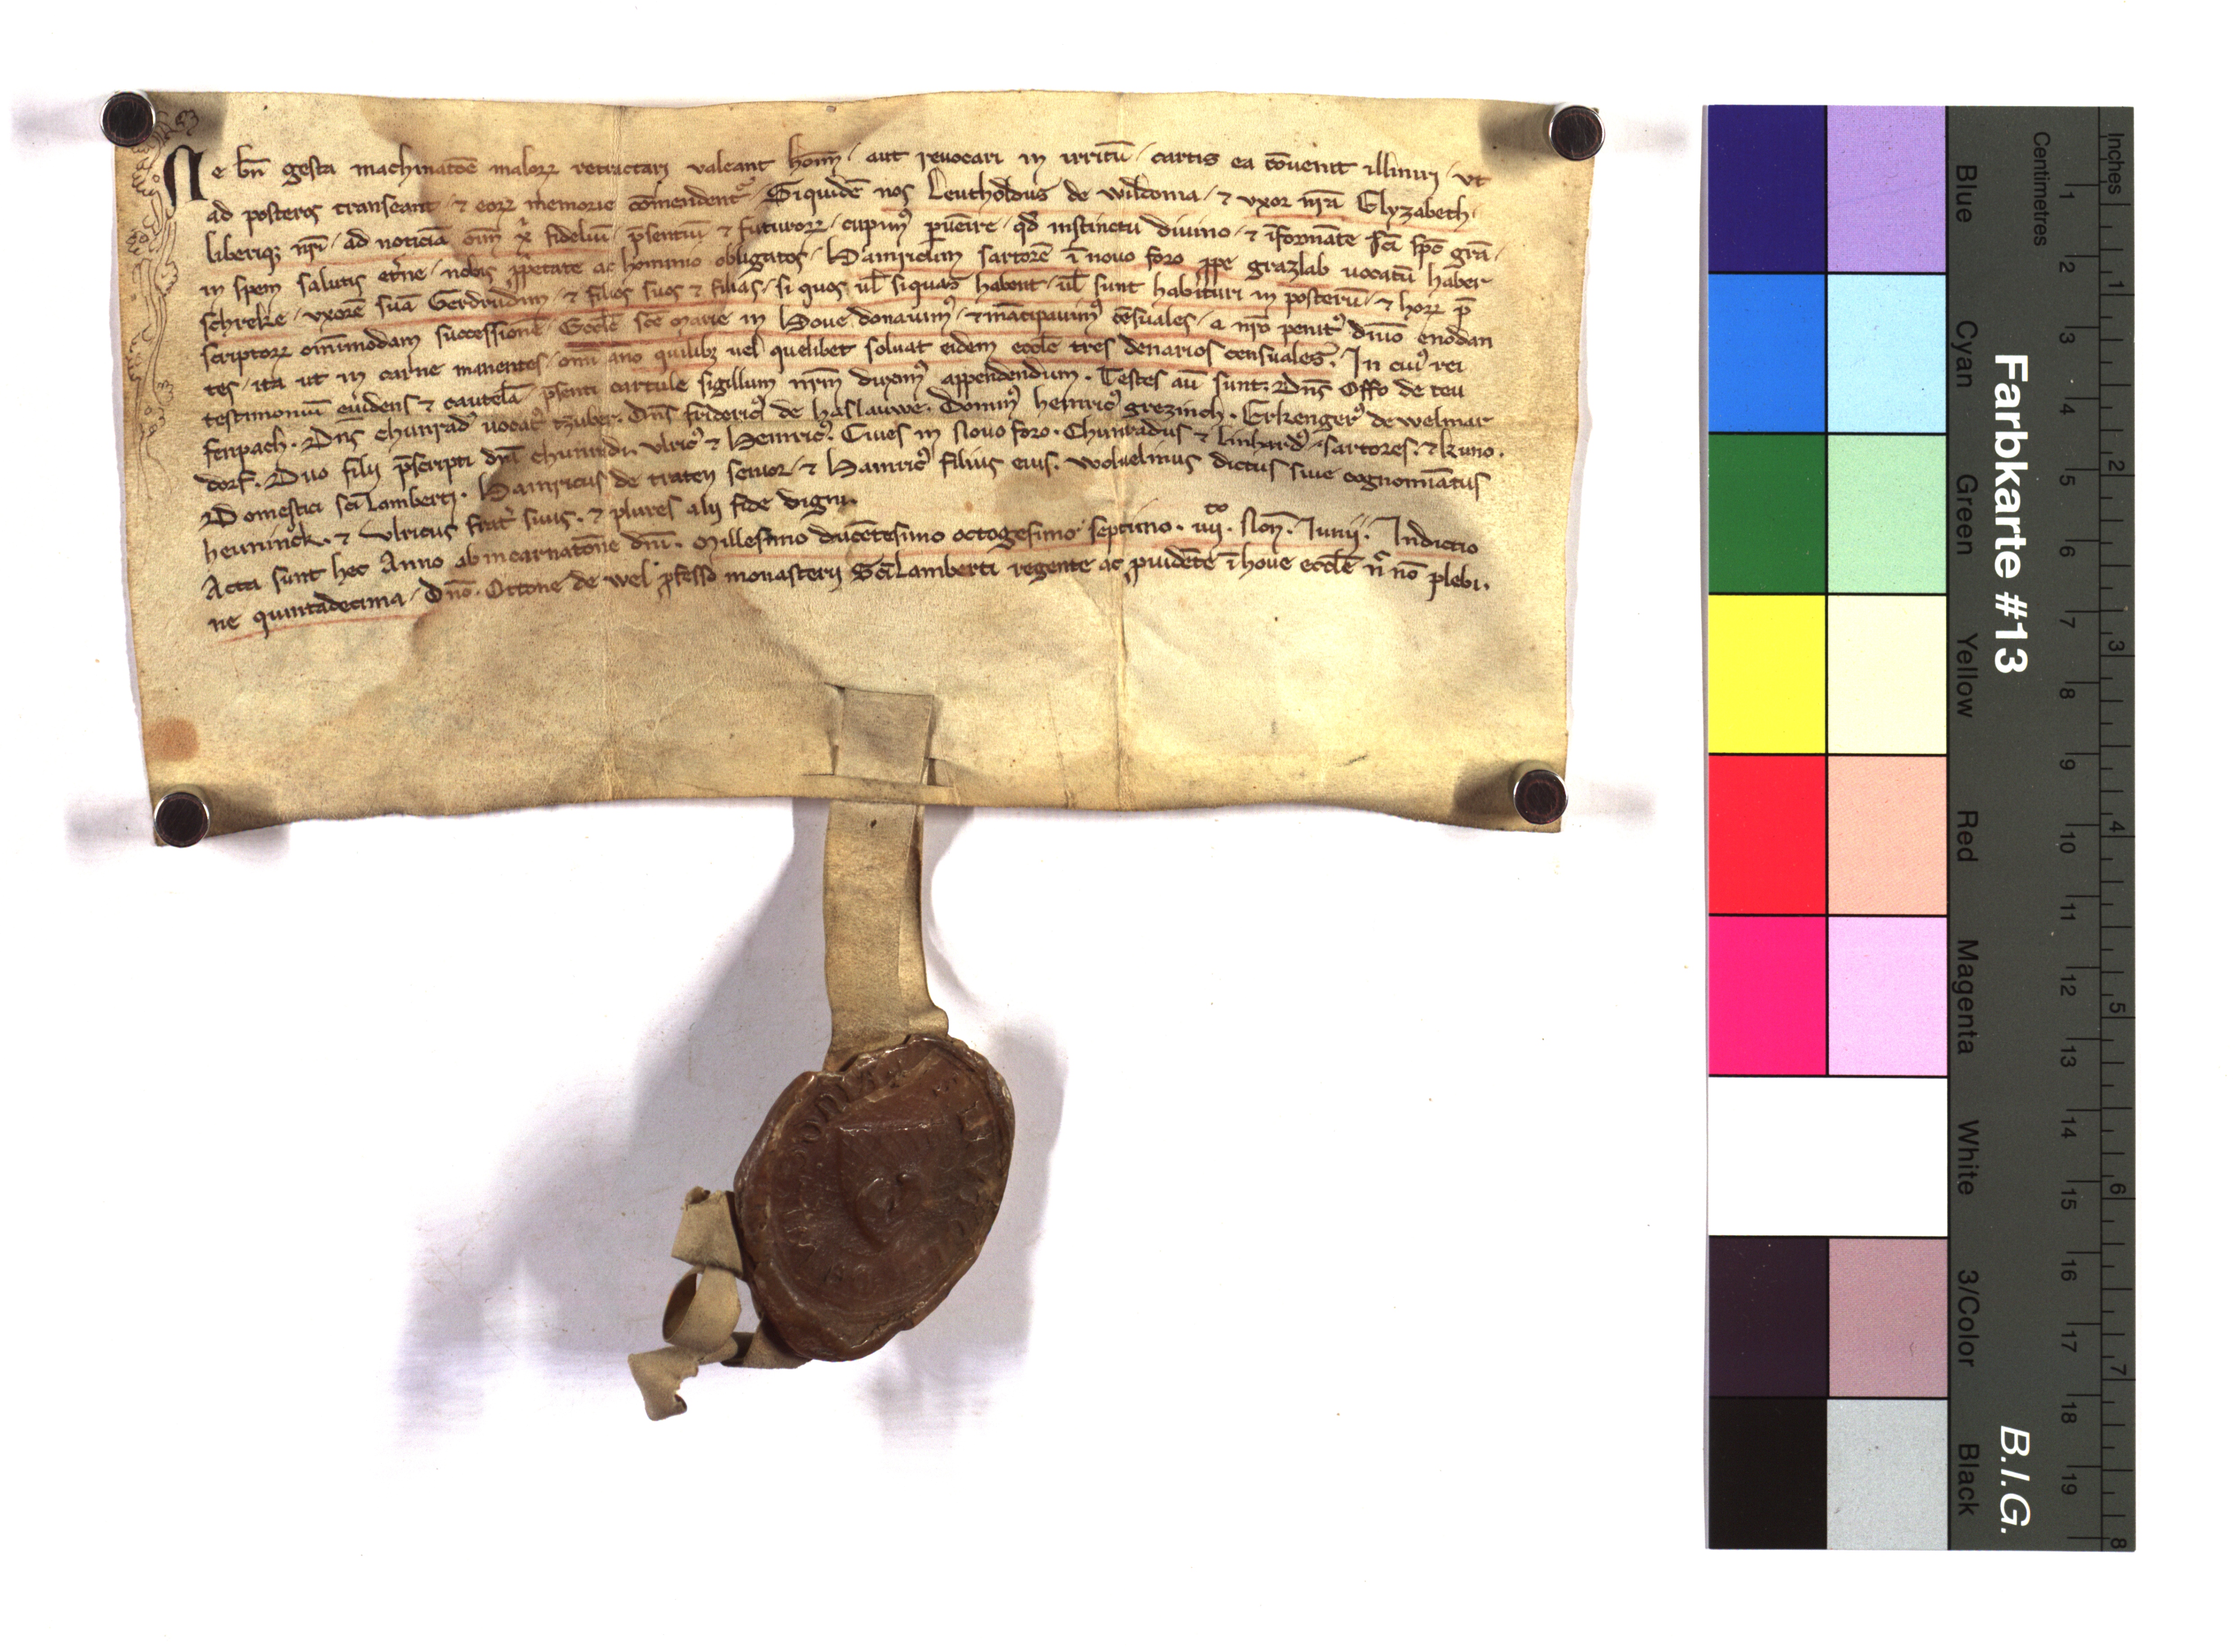 Ne bn̄ gesta machinatōe maloꝝ retractari valeant hom̄ / aut reuocari in irritū / cartis ea cōuenit illiniri / vt
ad posteros transeant / ⁊ eoꝝ memorie cōmendent᷑ / Siquidē nos Leutholdus de wildonia / ⁊ vxor nr̄a Elyzabeth /
liberiqꝫ nr̄i / ad noticiā om̄ xp̄i fidelium / p̄sentiū ⁊ futuroꝝ / cupimꝰ puēire / qd̓ instinctu diuino / ⁊ īformāte sc̄i sp̄c gr̄a /
in spem salutis et̓ne / nobis ꝓp̓etate ac hominio obligatos / Hainricum sartorē ī nouo foro ꝓpe grazlab uocatū haber
schreke / vxorē suā Gerdrudim / ⁊ filios suos ⁊ filias / si quos ul̄ siquas habent / ul̄ sunt habituri in posterū / ⁊ hoꝝ p̄
scriptoꝝ om̄imodam successionē / Eccl̄e sc̄e Marie in Houe donauimꝰ / ⁊ māncipauimꝰ cēsuales / a nr̄o penitꝰ dn̄io enodan
tes / ita ut in carne manentes / om̄i āno quilibꝫ uel quelibet soluat eidem eccl̄e tres denarios censuales / In cuiꝰ rei
testimoniū euidens ⁊ cautelā p̄senti cartule sigillum nr̄m duximꝰ appendendum . Testes aū sunt . Dn̄s Offo de teu
fenpach . Dn̄s chunradꝰ uocatꝰ tzuber . Dn̄s fridericꝰ de haslauwe . Dominꝰ heinricꝰ grezinch . Erkengerꝰ de welmar
dorf . Duo filij p̄scripti dn̄i chunradi . vlricꝰ ⁊ Heinricꝰ . Ciues in Nouo foro . Chunradus ⁊ linhardꝰ sartores . ⁊ kuno .
Domestici sc̄i Lamberti . Hainricus de traten senior / ⁊ Hainricꝰ filius eius . woluelinus dictus siue cognomīatus
heuninck . ⁊ vlricus frat̓ suus . ⁊ plures alij fide digni .
Acta sunt hec Anno ab incarnatōne dn̄i . Millesimo ducētesimo octogesimo septimo . iiij.to Non̄ . Iunij . Indictio
ne quintadecima / Dn̄o . Ottone de wel ꝓfesso monasterij Sc̄i Lamberti regente ac ꝓuidēte ī houe eccl̄e n̄ nō plebi .
Farbkarte #13
B.I.G.
Blue
Cyan
Green
Yellow
Red
Magenta
White
3/Color
Black
Centimetres
1 2 3 4 5 6 7 8 9 10 11 12 13 14 15 16 17 18 19
Inches
1 2 3 4 5 6 7 8